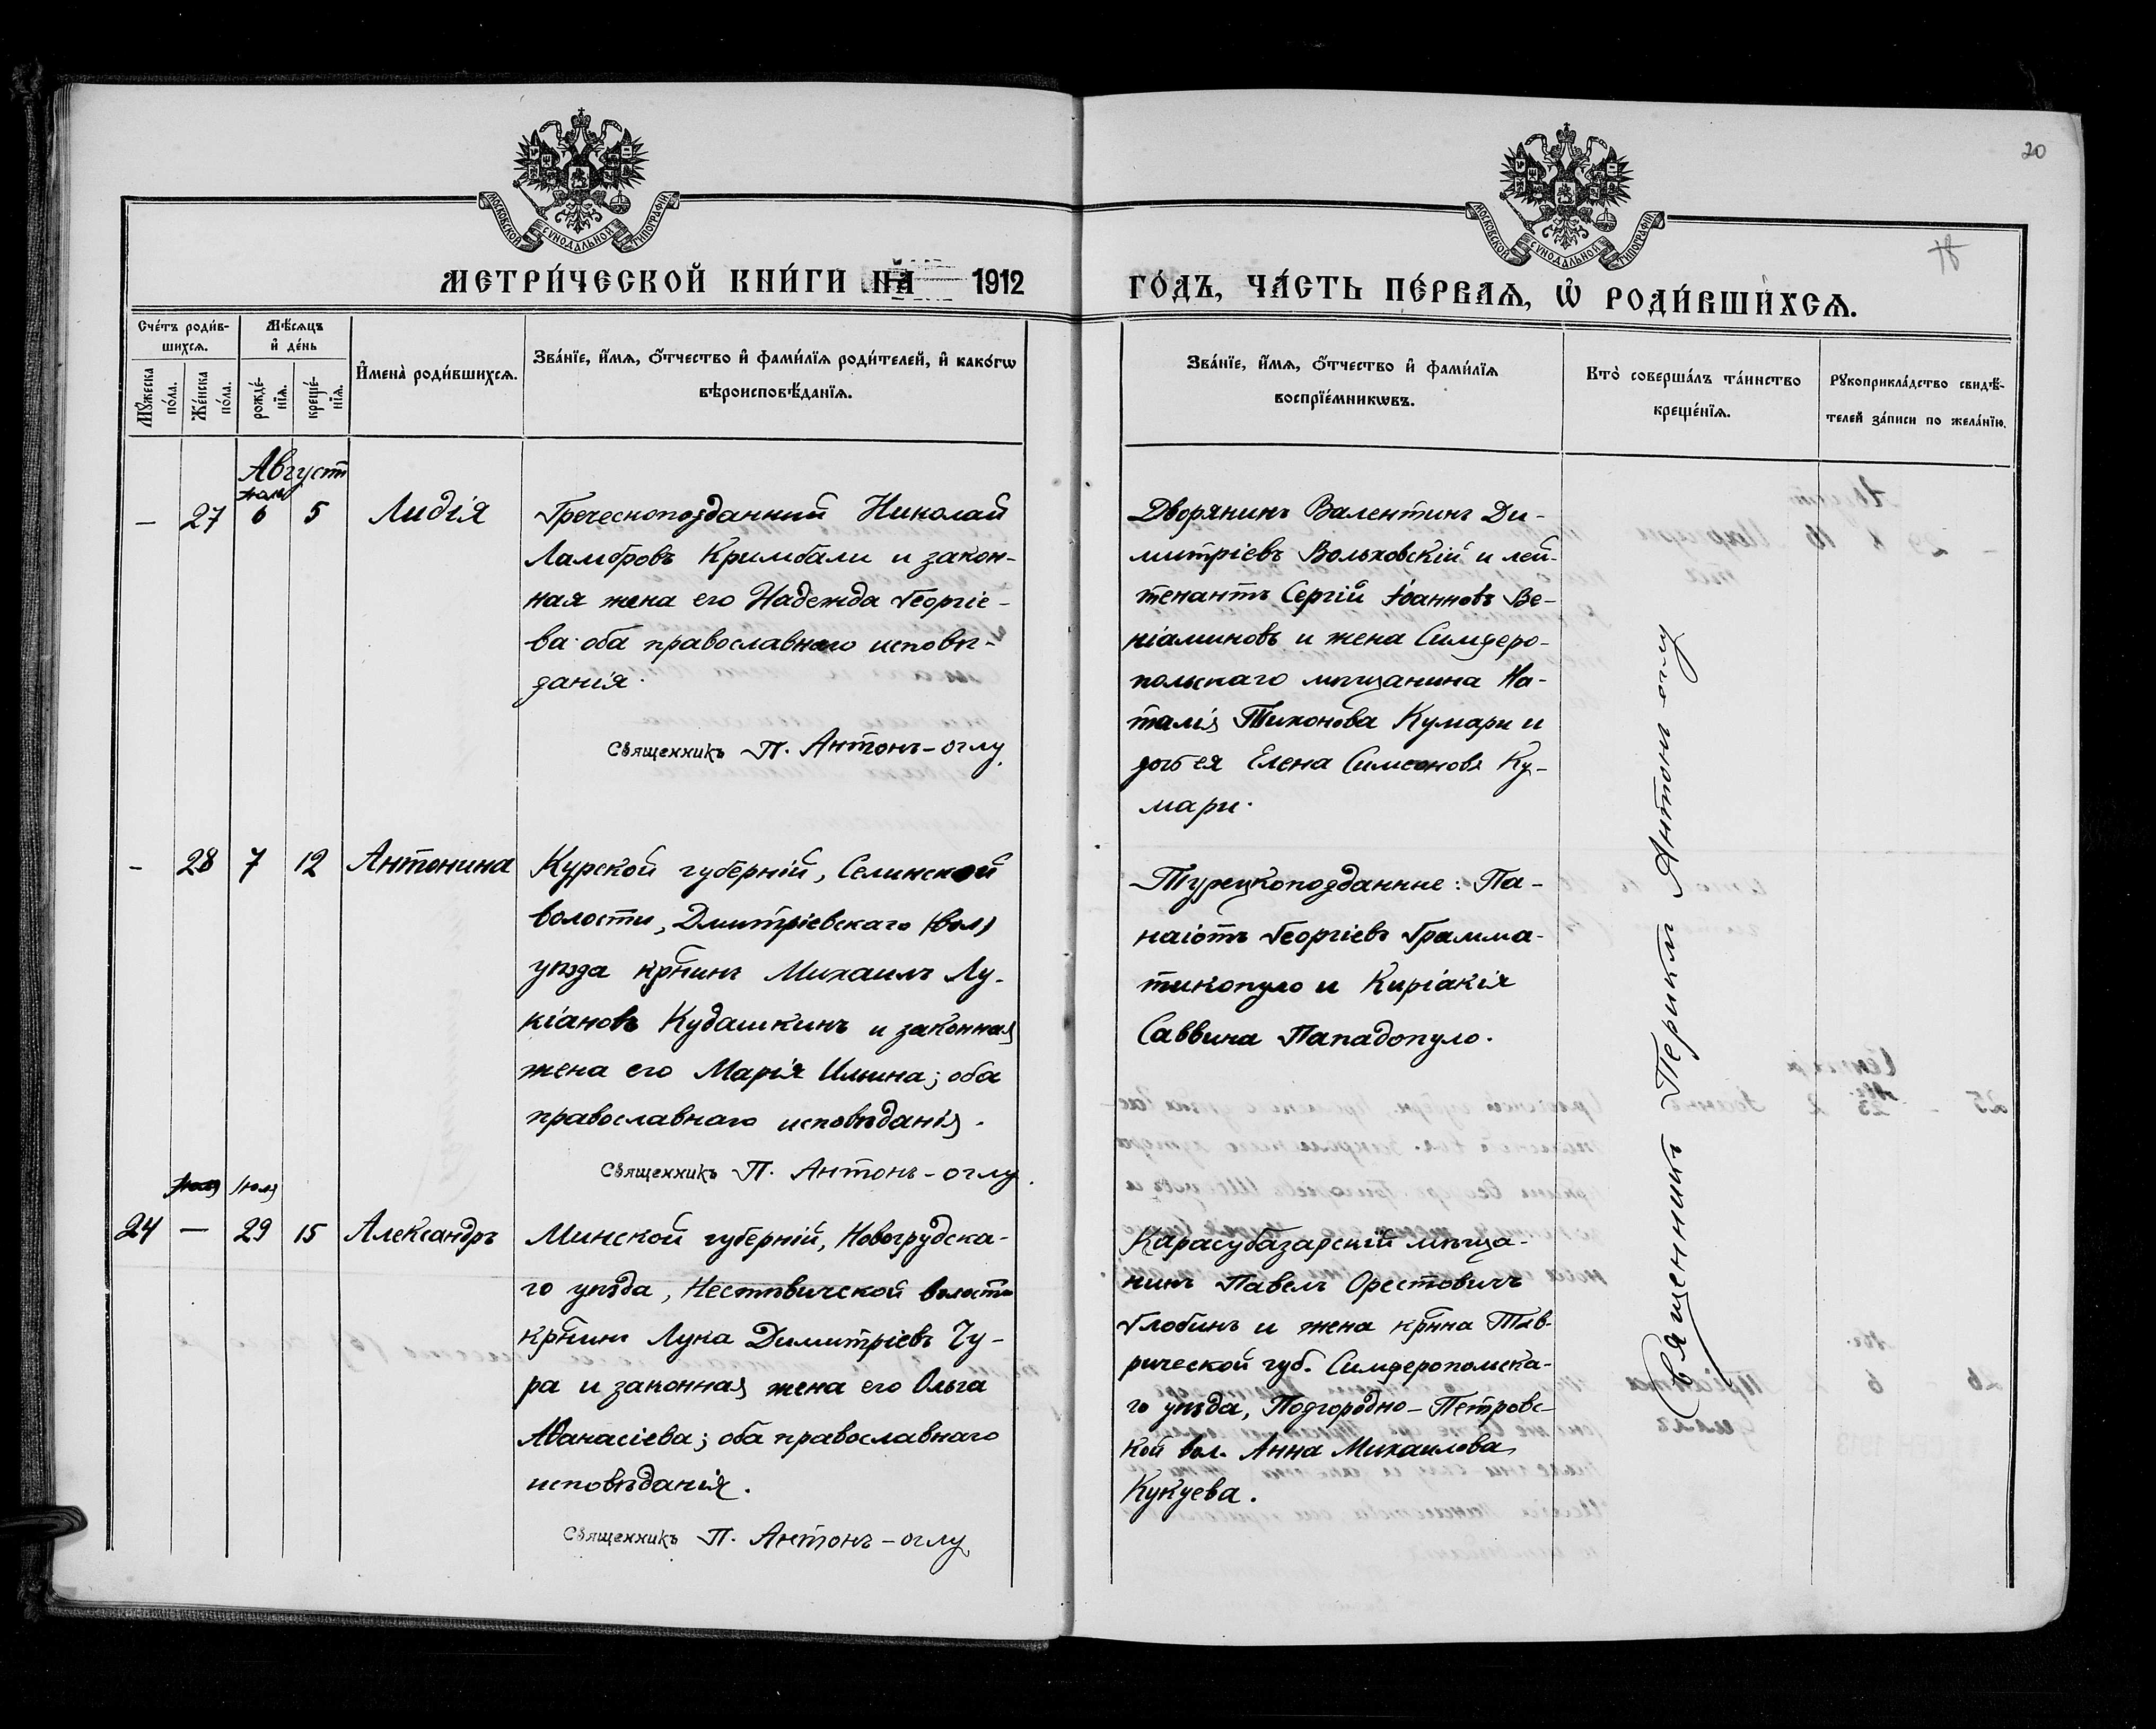 20
МОСКОВСКОЙ СУНОДАЛЬНОЙ ТИПОГРАФІИ
МОСКОВСКОЙ СУНОДАЛЬНОЙ ТИПОГРАФІИ
МЕТРИ́ЧЕСКОЙ КНИ́ГИ НА 1912
ГО́ДЪ, ЧА́СТЬ ПЕ́РВАѦ, Ѡ҆ РОДИ́ВШИХСѦ.
Сче́тъ роди́в-
шихсѧ.
Мѣ́сѧцъ
и҆ де́нь
Мꙋ́жеска
по́ла.
Же́нска
по́ла.
рожде́-
нїѧ.
креще́-
нїѧ.
И҆мена̀ роди́вшихсѧ.
Зва́нїе, и҆́мѧ, ѻ҆́тчество и҆ фами́лїѧ роди́телей, и҆ како́гѡ
вѣроисповѣ́данїѧ.
Зва́нїе, и҆́мѧ, ѻ҆́тчество и҆ фами́лїѧ
воспрїе́мникѡвъ.
Кто̀ соверша́лъ та́инство
креще́нїѧ.
Рꙋкоприкла́дство свидѣ́-
телей за́писи по жела́нїю.
Август
— 27 6 5 Лидія
Греческоподданный Николай
Ламбровъ Кримбали и закон-
ная жена его Надежда Георгіе-
ва оба православнаго исповѣ-
данія.
Священникъ П. Антонъ-оглу
Дворянинъ Валентинъ Ди-
митріевъ Вольховскій и лей-
тенантъ Сергій Іоанновъ Ве-
ніаминовъ и жена Симферо-
польскаго мѣщанина На-
талія Тихонова Кумари и
дочь ея Елена Симеонова Ку-
мари.
— 28 7 12 Антонина
Курской губерніи, Селинской
волости, Дмитріевскаго (вол)
уѣзда крнинъ Михаилъ Лу-
кіановъ Кудашкинъ и законная
жена его Марія Ильина; оба
православнаго исповѣданія.
Священникъ П. Антонъ-оглу.
Турецкоподданные: Па-
наіотъ Георгіевъ Грамма-
тикопуло и Киріакія
Саввина Пападопуло.
Іюля
24 — 29 15 Александръ
Минской губерніи, Новогрудска-
го уѣзда, волости
крнинъ Лука Димитріевъ Чу-
ра и законная жена его Ольга
Аѳанасіева; оба православнаго
исповѣданія.
Священникъ П. Антонъ-оглу
Карасубазарскій мѣща-
нинъ Павелъ Орестовичъ
Глобинъ и жена крнина Тав-
рической губ. Симферопольска-
го уѣзда, Подгородно-Петровс-
кой вол. Анна Михаилова
Кукуева.
Священникъ Периклъ Антонъ оглу